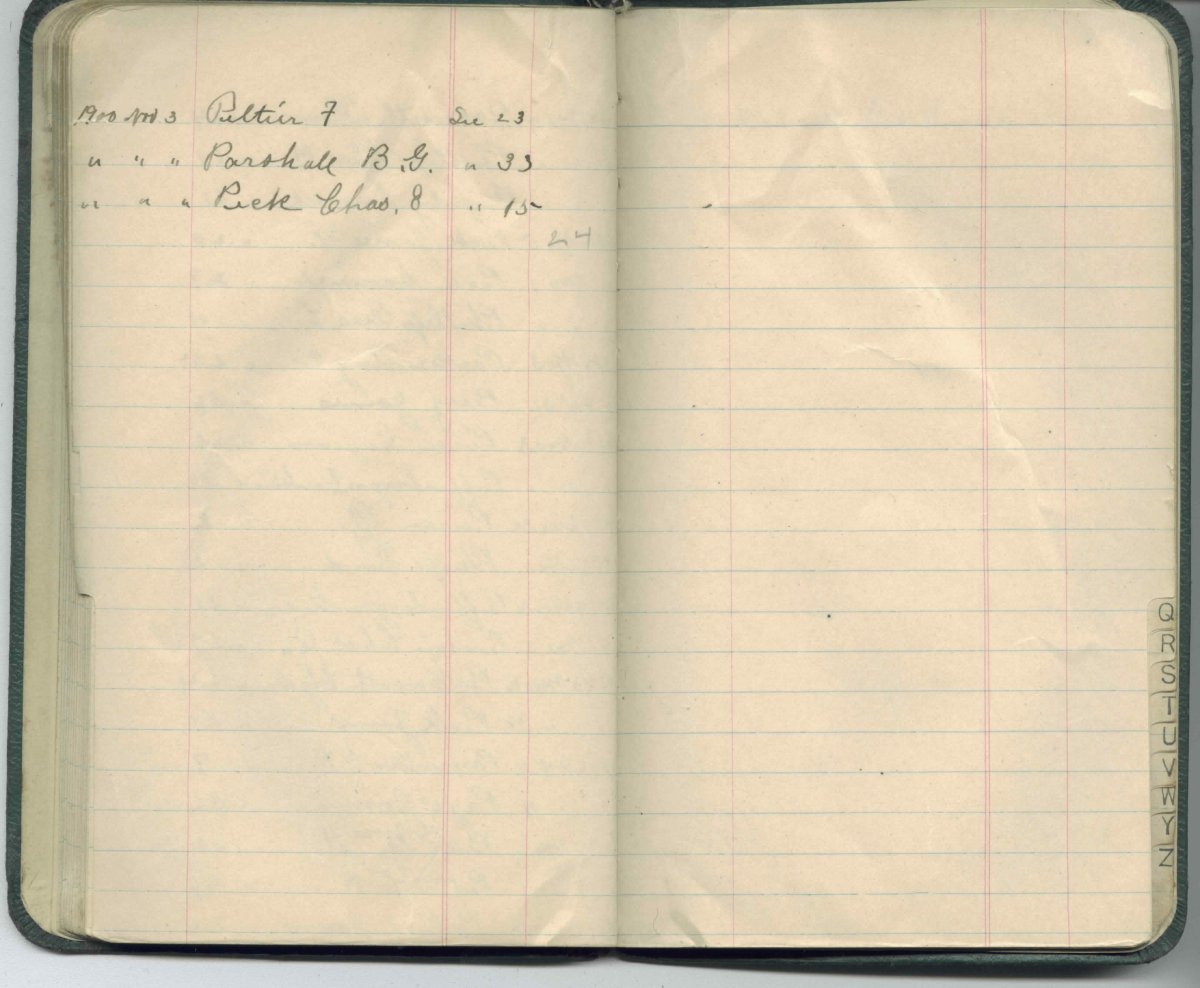 1900 Nov 3 Peltier F Sec 23
" " " Parshall B.G. " 33
" " " Peck Chas. 8 " 15
24
Q
R
S
T
U
V
W
Y
Z